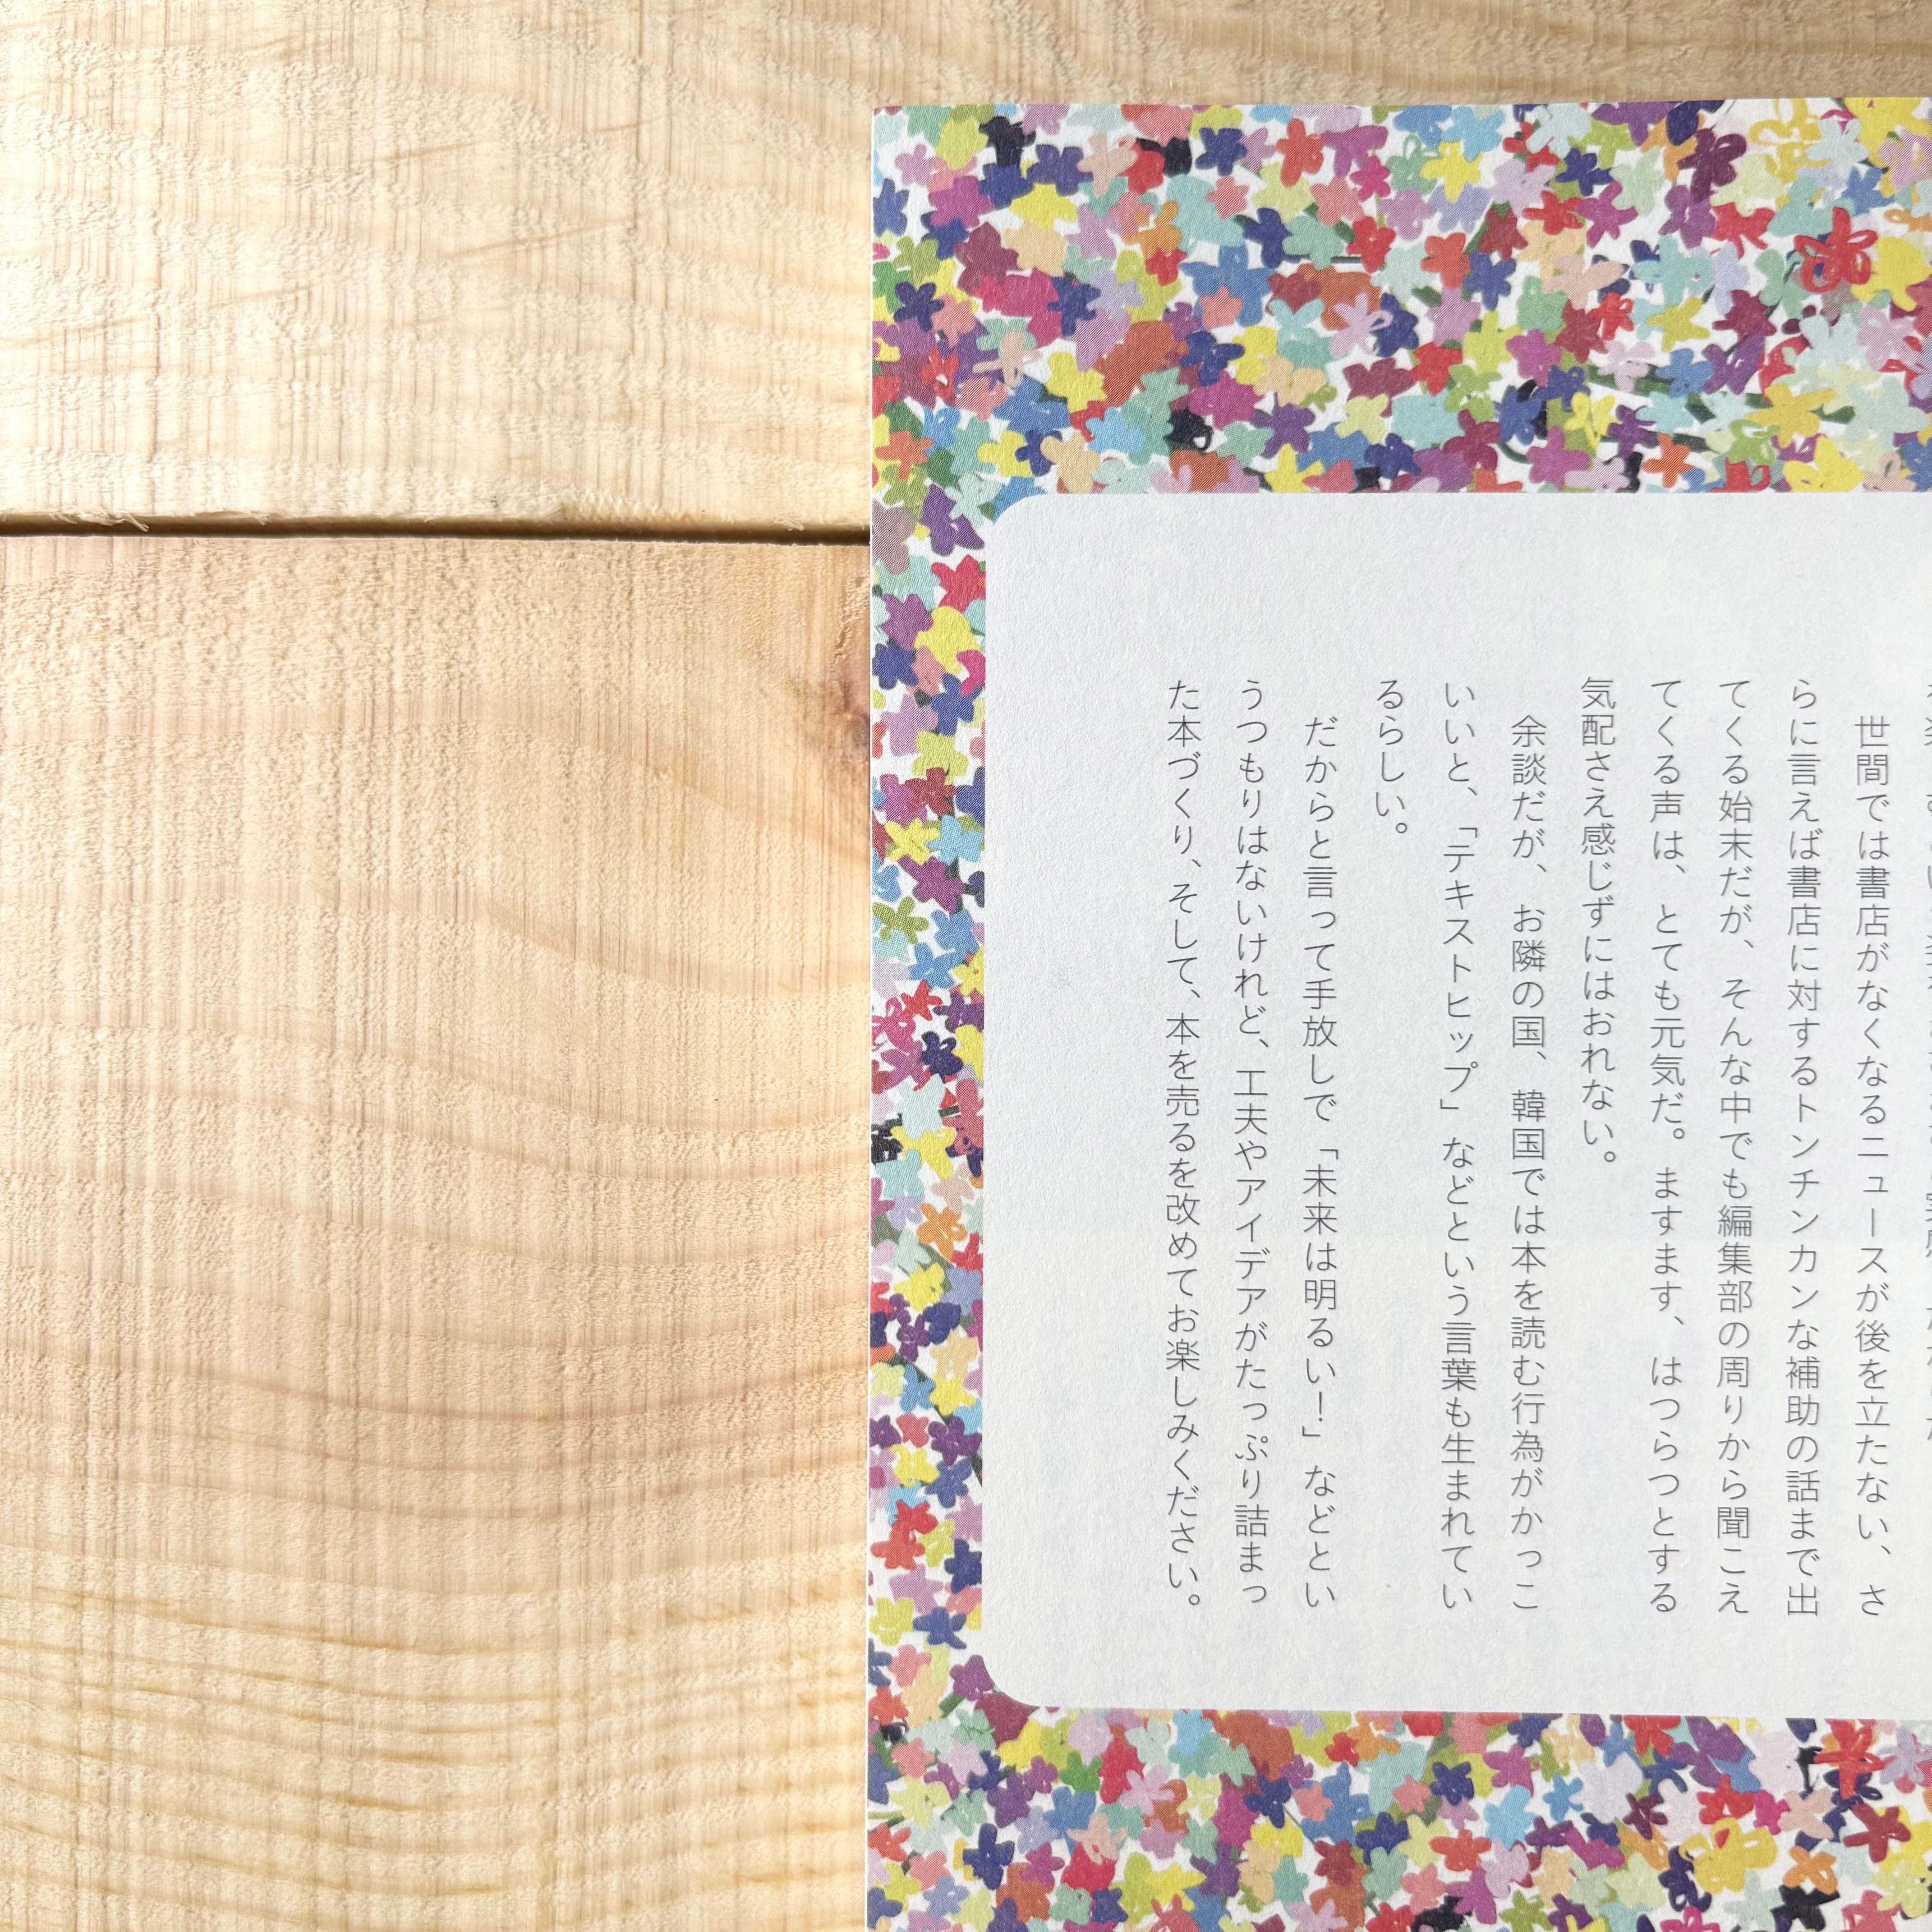 世間では書店がなくなるニュースが後を立たない、さ
らに言えば書店に対するトンチンカンな補助の話まで出
てくる始末だが、そんな中でも編集部の周りから聞こえ
てくる声は、とても元気だ。ますます、はつらつとする
気配さえ感じずにはおれない。
余談だが、お隣の国、韓国では本を読む行為がかっこ
いいと、「テキストヒップ」などという言葉も生まれてい
るらしい。
だからと言って手放しで「未来は明るい！」などとい
うつもりはないけれど、工夫やアイデアがたっぷり詰まっ
た本づくり、そして、本を売るを改めてお楽しみください。